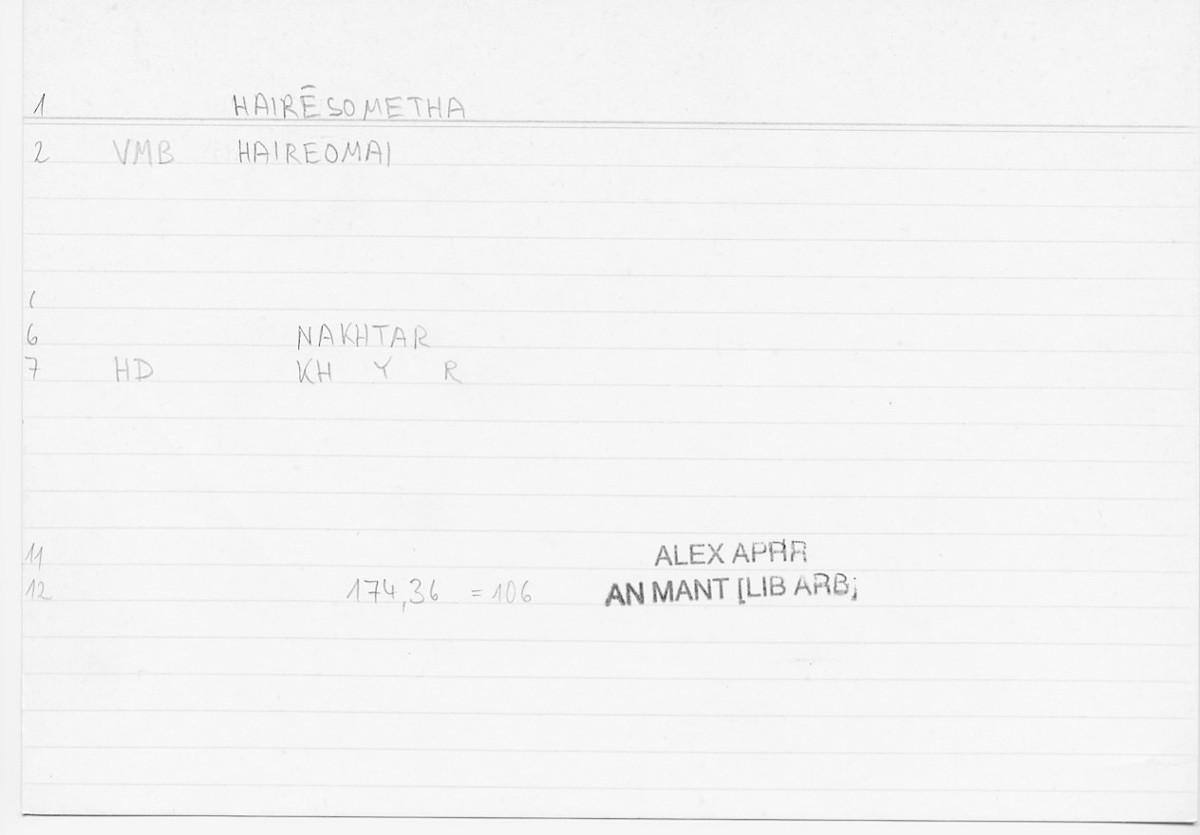 1 HAIRĒSOMETHA
2 VMB HAIREOMAI
(
6 NAKHTAR
7 HD KH Y R
11 ALEX APHR
12 174,36 = 106 AN MANT [LIB ARB]